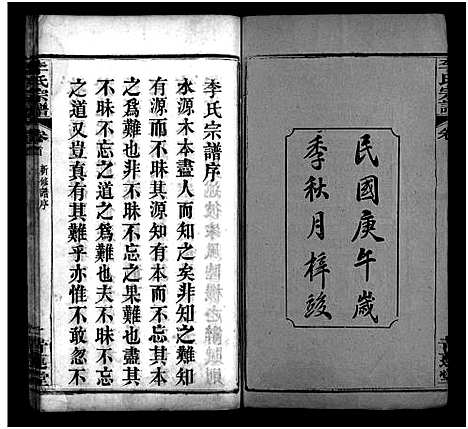 民國庚午歲
季秋月梓竣
李氏宗譜序
水源木本盡人而知之矣非知之難知
有源而不昧其源知有本而不忘其本
之爲難也非不昧不忘之果難也盡其
不昧不忘之道之爲難也夫不昧不忘
之道又豈真有其難乎亦惟不敢忽不
李氏宗譜
卷首
新修譜序
青蓮堂